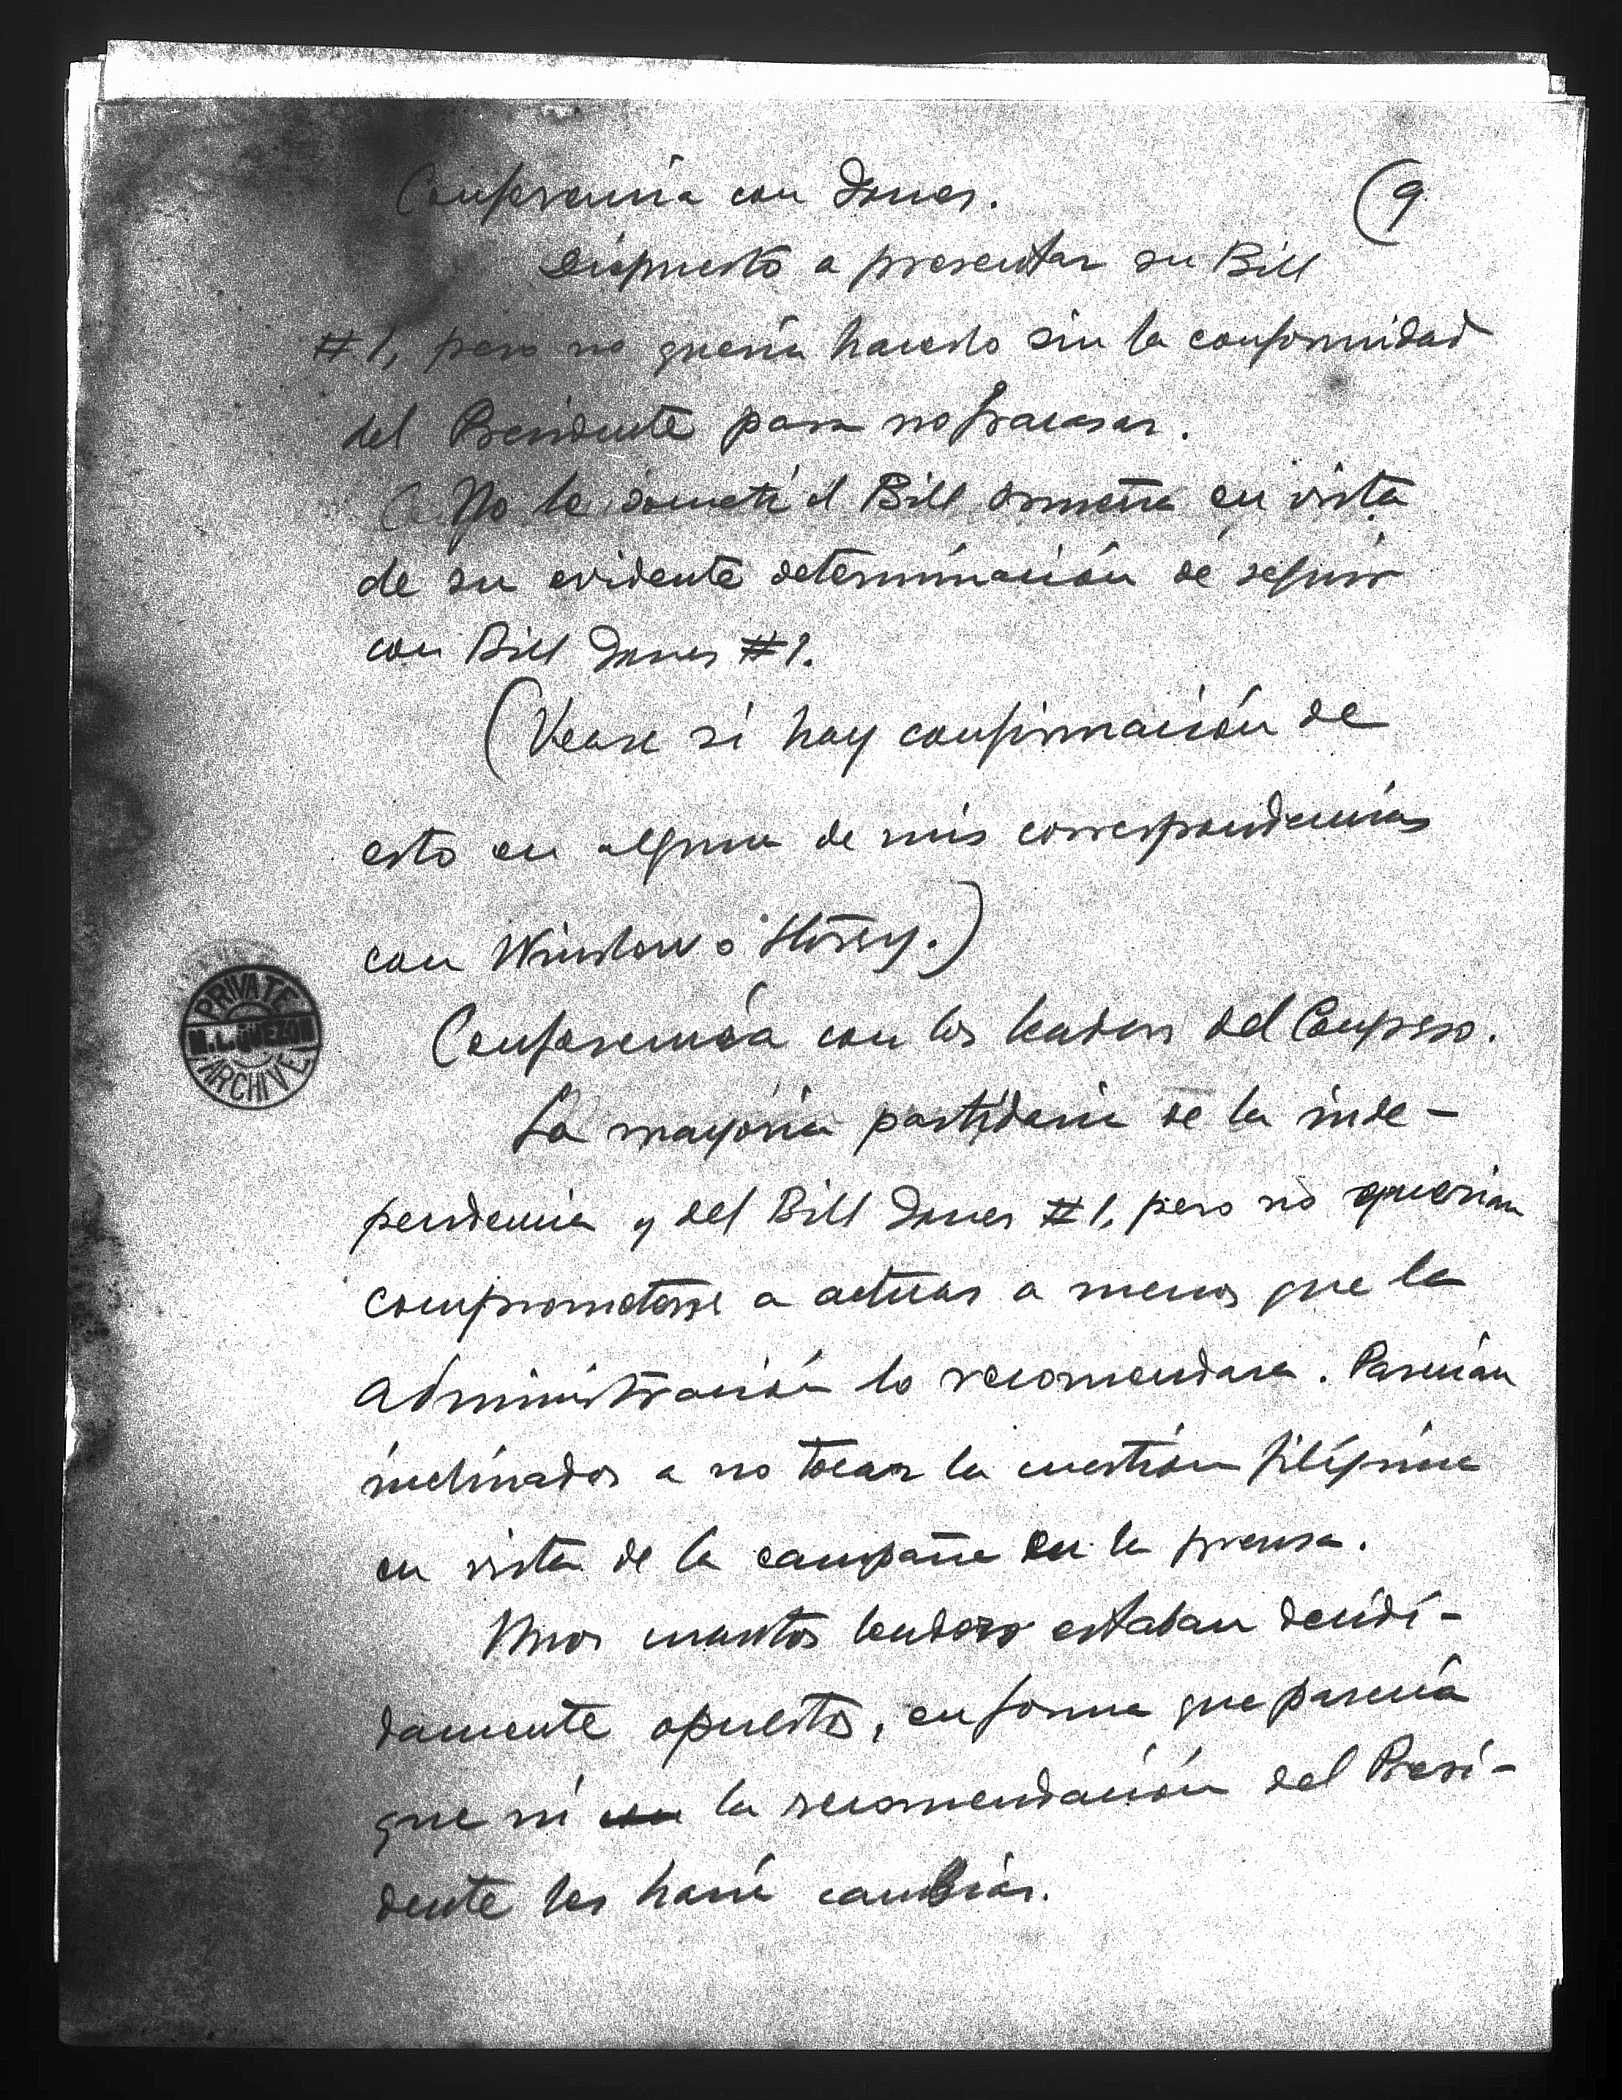 Conferencia con Jones.
(9
Dispuesto a presentar su Bill
#1, pero no quería hacerlo sin la conformidad
del Presidente para no fracasar.
No le sometí el Bill Osmeña en vista
de su evidente determinación de seguir
con Bill Jones #1.
(Vease si hay confirmación de
esto en alguna de mis correspondencias
con Winslow o Storey.)
Conferencia con los leaders del Congreso.
La mayoría partidaria de la inde-
pendencia y del Bill Jones #1, pero no querían
comprometerse a actuar a menos que la
administración lo recomendara. Parecían
inclinados a no tocar la cuestión filipina
en vista de la campaña en la prensa.
Unos cuantos leaders estaban decidi-
damente opuestos, en forma que parecía
que ni con la recomendación del Presi-
dente les haría cambiar.
PRIVATE
M. L. QUEZON
ARCHIVE